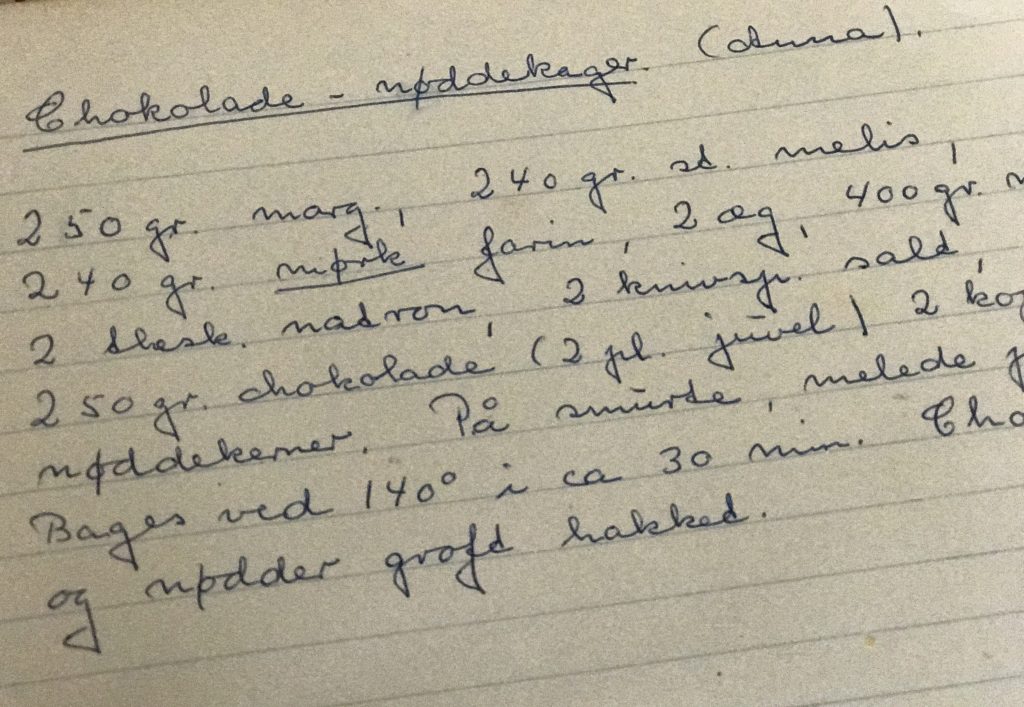 Chokolade - nøddekager. (Anna).
250 gr. marg., 240 gr. st. melis,
240 gr. mørk farin, 2 æg, 400 gr.
2 tesk. natron, 2 knivsp. salt,
250 gr. chokolade (2 pl. juvel) 2 kop
nøddekerner. På smurte, melede
Bages ved 140° i ca 30 min. Cho
og nødder groft hakket.